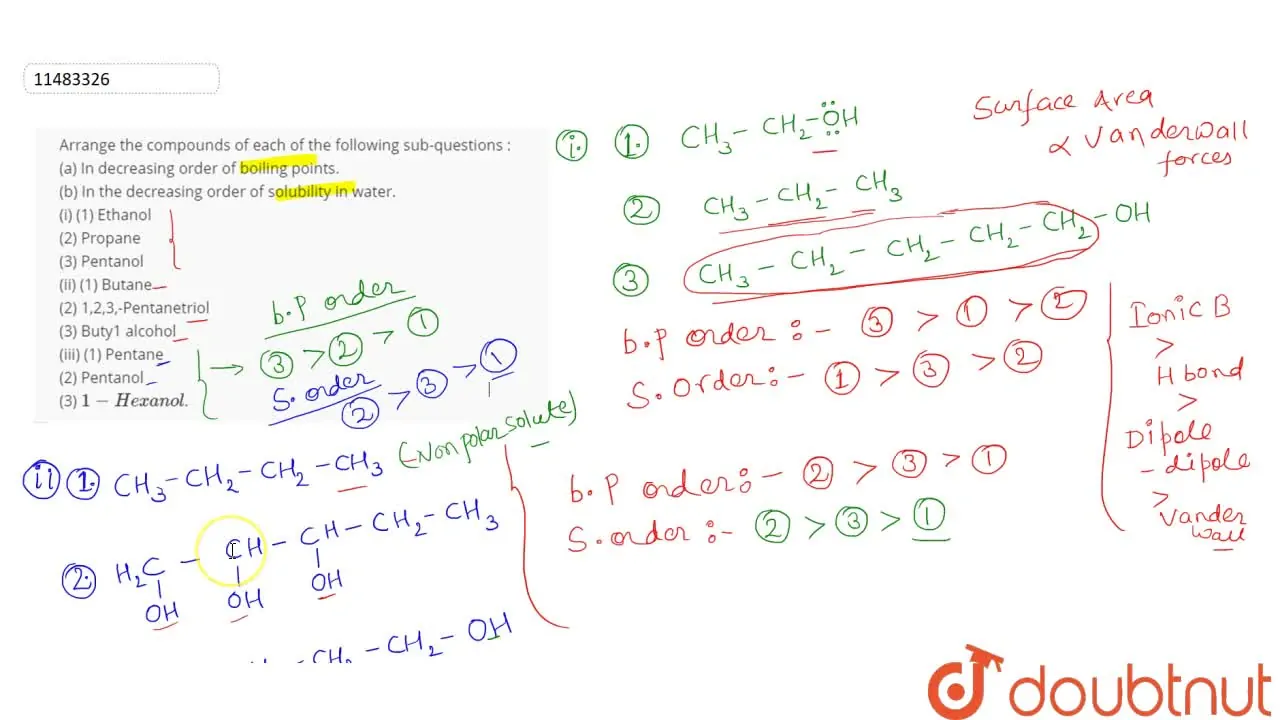 11483326
Arrange the compounds of each of the following sub-questions :
(a) In decreasing order of boiling points.
(b) In the decreasing order of solubility in water.
(i) (1) Ethanol
(2) Propane
(3) Pentanol
(ii) (1) Butane
(2) 1,2,3,-Pentanetriol
(3) Buty1 alcohol
(iii) (1) Pentane
(2) Pentanol
(3) 1 - Hexanol.
b.P order
→ ③ > ② > ①
S.order
② > ③ > ①
i. 1. CH₃ - CH₂ - OH
② CH₃ - CH₂ - CH₃
③ CH₃ - CH₂ - CH₂ - CH₂ - CH₂ - OH
b.P order :- ③ > ① > ②
S.Order :- ① > ③ > ②
Surface Area
∝ Vanderwall
forces
Ionic B
>
H bond
>
Dipole
- dipole
>
Vander
wall
ii 1. CH₃ - CH₂ - CH₂ - CH₃ (Nonpolar solute)
2. H₂C - CH - CH - CH₂ - CH₃
OH OH OH
CH₂ - CH₂ - OH
b.P order :- ② > ③ > ①
S.order :- ② > ③ > ①
doubtnut